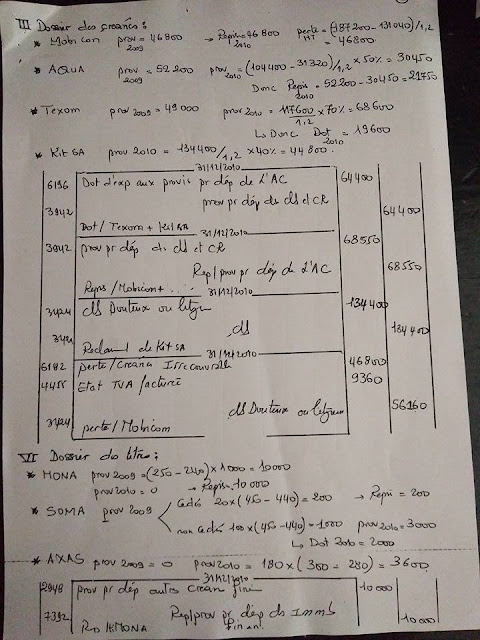 III Dossier des créances :
* Mobicom prov 2009 = 46800 → Repis 2010 = 46800 perte HT = (187200 - 131040)/1,2 = 46800.
* AQUA prov 2009 = 52200 prov 2010 = (104400 - 31320)/1,2 × 50% = 30450
Donc Repis 2010 = 52200 - 30450 = 21750
* Texom prov 2009 = 49000 prov 2010 = 117600/1,2 × 70% = 68600
↳ Donc Dot 2010 = 19600
* Kit SA prov 2010 = 134400/1,2 × 40% = 44800.
31/12/2010
6196 Dot d'exp aux provis pr dép de L'AC 64400
3942 prov pr dép ds clts et CR 64400
Dot / Texom + Kit SA
31/12/2010
3942 prov pr dép ds clts et CR 68550
Rep/prov pr dép de L'AC 68550
Repis / Mobicom + ...
31/12/2010
3424 clts Douteux ou 134400
3421 clts 134400
Reclamt de Kit SA
31/12/2010
6182 perte/Créanc Irrécouvrable 46800
4455 Etat TVA facturée 9360
3424 clts Douteux ou 56160
perte / Mobicom
VII Dossier des titres :
* MONA prov 2009 = (250 - 240) × 1000 = 10000
prov 2010 = 0 → Repis = 10 000
* SOMA prov 2009 cédés 20 × (450 - 440) = 200 → Repis = 200
non cédés 100 × (450 - 440) = 1000 prov 2010 = 3000
↳ Dot 2010 = 2000
* AXAS prov 2009 = 0 prov 2010 = 180 × (300 - 280) = 3600
31/12/2010
2948 prov pr dép autres crean fin 10 000
7392 Rep/prov pr dép ds Imms finan. 10000
MONA